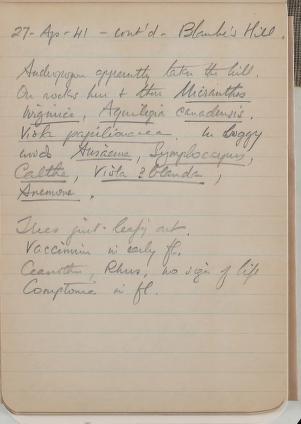 27-Apr-41 - cont'd - Blanke's Hill.
Andropogon apparently takes the hill.
On rocks here & there Micranthes
virginica, Aquilegia canadensis.
Viola papilionacea. In boggy
woods Arisaema, Symplocarpus,
Caltha, Viola ? blanda,
Anemone.
Trees just leafing out.
Vaccinium in early fl.
Ceanothus, Rhus, no sign of life
Comptonia in fl.